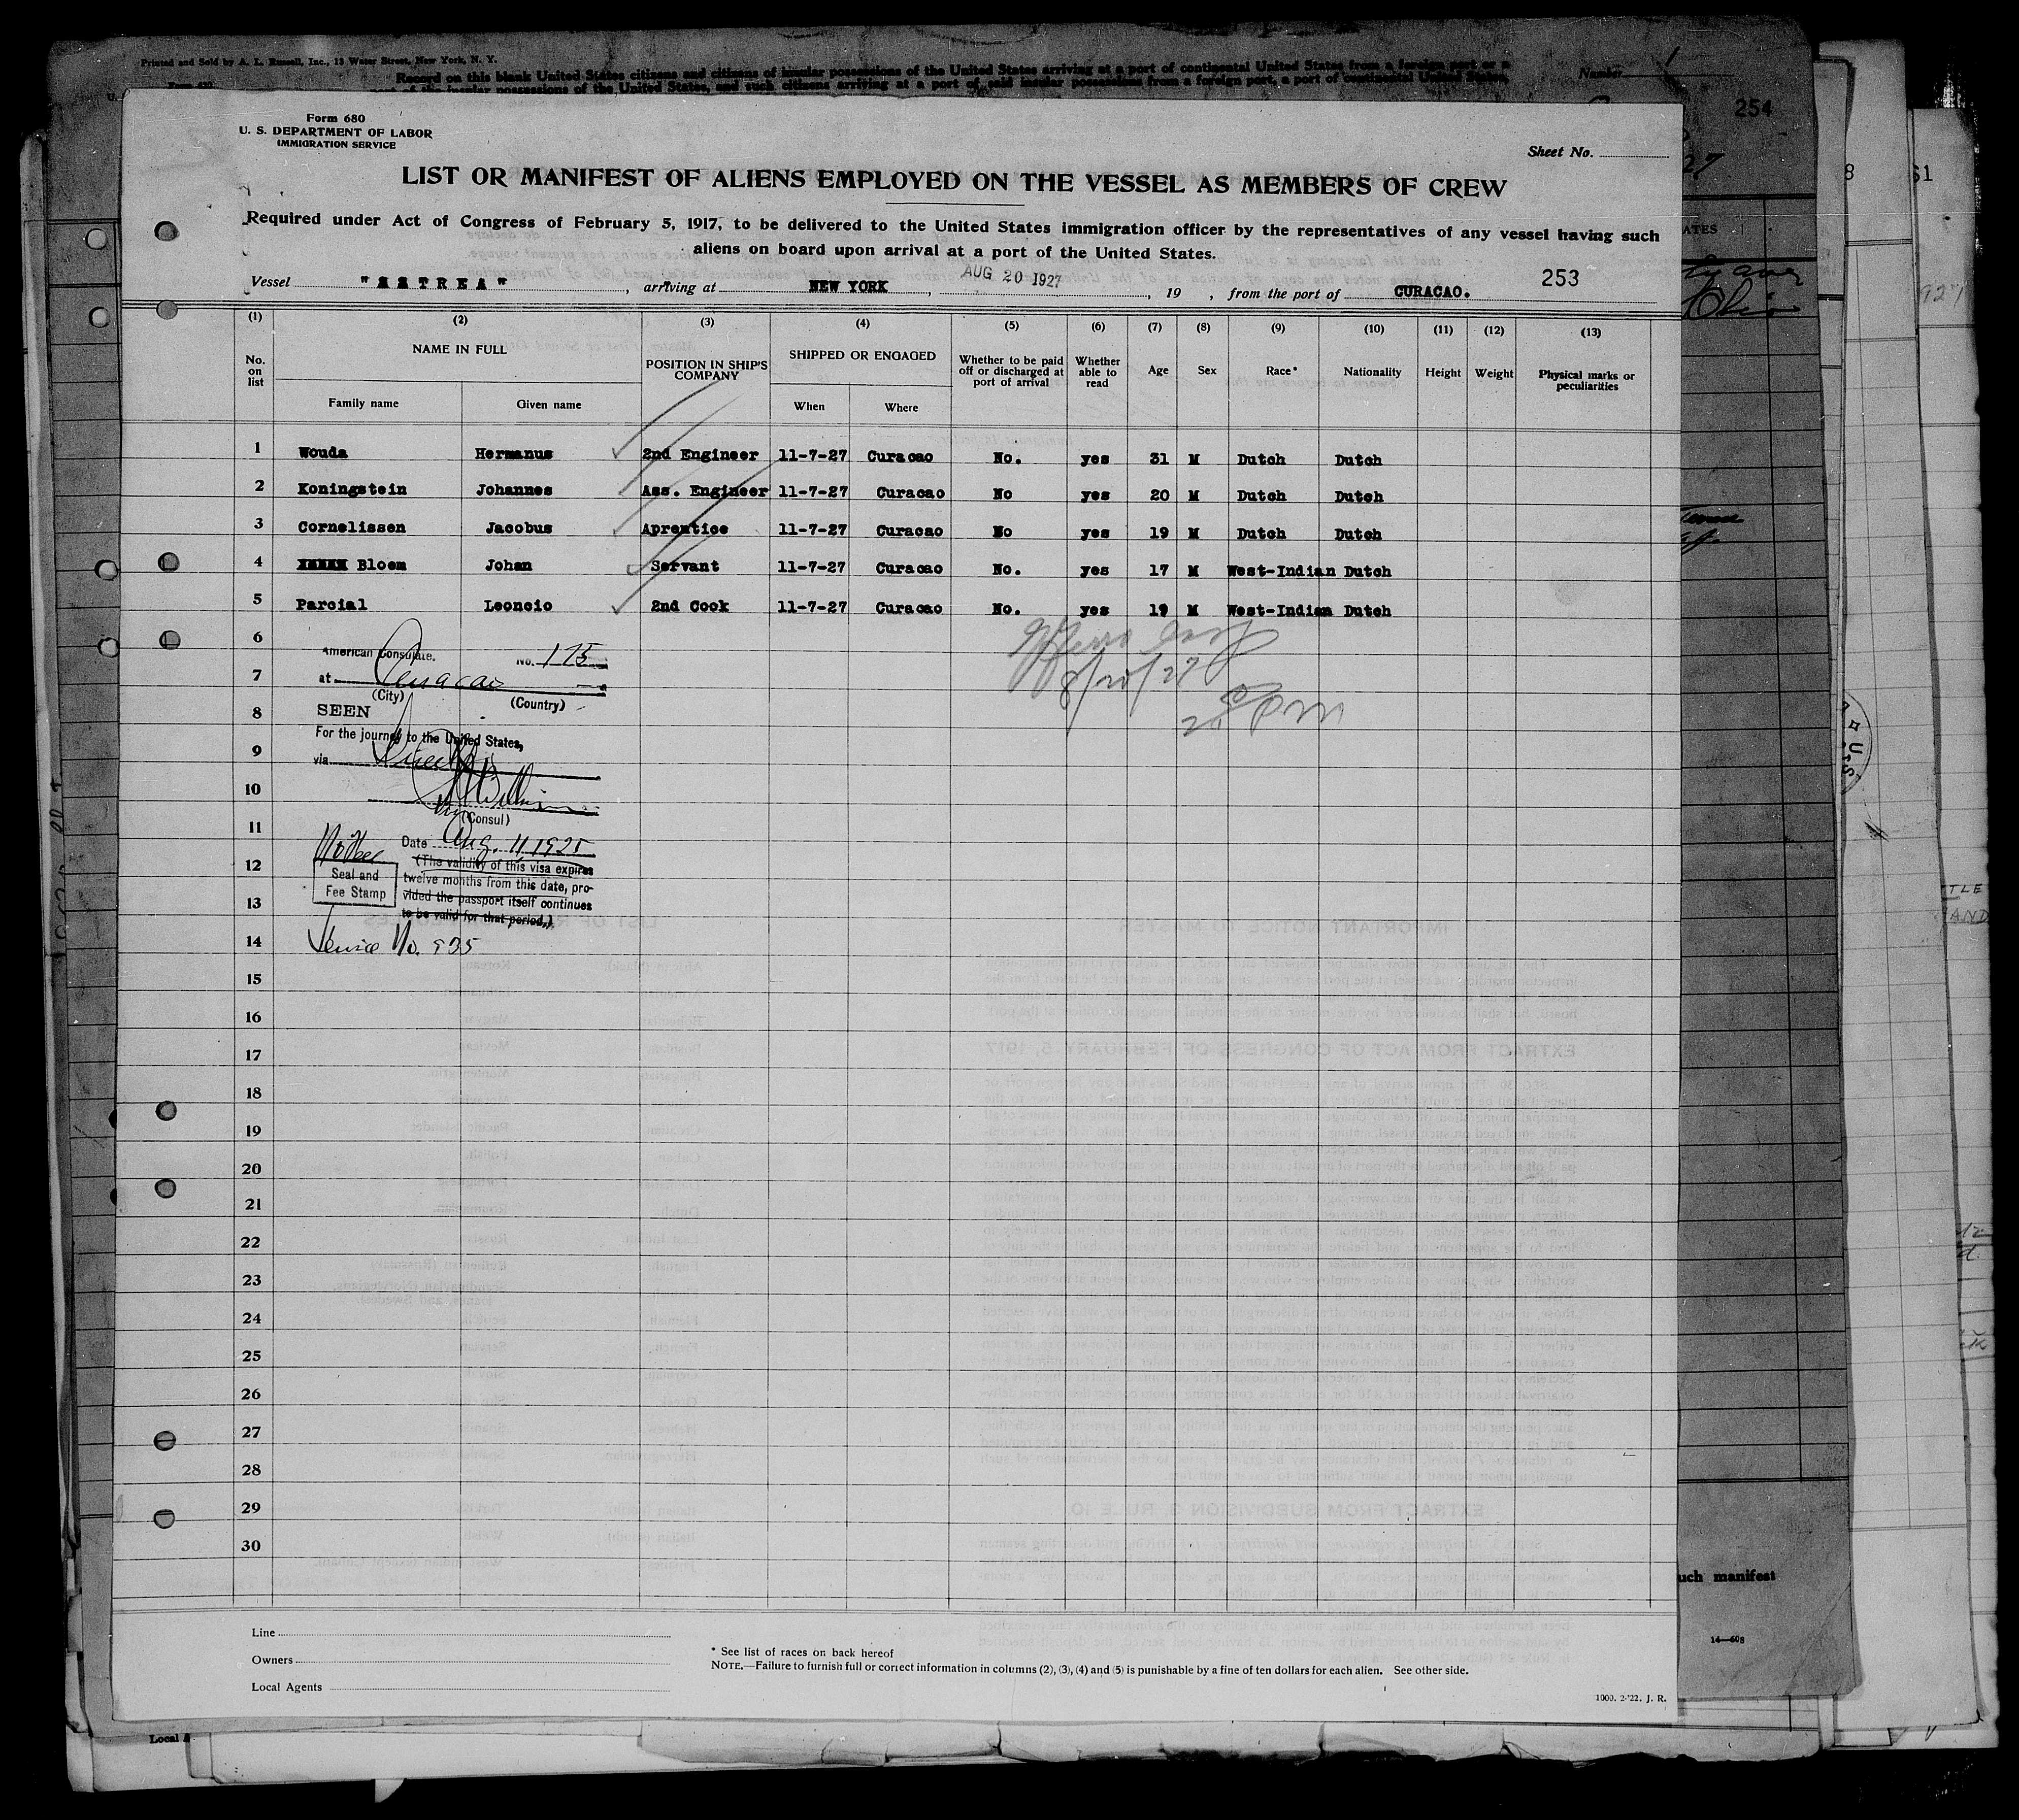 Printed and Sold by A. L. Russell, Inc., 13 Water Street, New York, N. Y.
Record on this blank United States citizens and citizens of insular possessions of the United States arriving at a port of continental United States from a foreign port or a
port of the insular possessions of the United States, and such citizens arriving at a port of said insular possessions from a foreign port, a port of continental United States,
Number 1
254
Form 680
U. S. DEPARTMENT OF LABOR
IMMIGRATION SERVICE
Sheet No.
LIST OR MANIFEST OF ALIENS EMPLOYED ON THE VESSEL AS MEMBERS OF CREW
Required under Act of Congress of February 5, 1917, to be delivered to the United States immigration officer by the representatives of any vessel having such
aliens on board upon arrival at a port of the United States.
Vessel "ASTREA", arriving at NEW YORK, AUG 20 1927, 19 , from the port of CURACAO. 253
(1) (2) (3) (4) (5) (6) (7) (8) (9) (10) (11) (12) (13)
No. on list NAME IN FULL POSITION IN SHIP'S COMPANY SHIPPED OR ENGAGED Whether to be paid off or discharged at port of arrival Whether able to read Age Sex Race* Nationality Height Weight Physical marks or peculiarities
Family name Given name When Where
1 Wouda Hermanus 2nd Engineer 11-7-27 Curacao No. yes 31 M Dutch Dutch
2 Koningstein Johannes Ass. Engineer 11-7-27 Curacao No yes 20 M Dutch Dutch
3 Cornelissen Jacobus Aprentice 11-7-27 Curacao No yes 19 M Dutch Dutch
4 Bloem Johan Servant 11-7-27 Curacao No. yes 17 M West-Indian Dutch
5 Parcial Leoncio 2nd Cook 11-7-27 Curacao No. yes 19 M West-Indian Dutch
6
American Consulate. No. 175
7
at Curacao
(City) (Country)
8
SEEN
For the journey to the United States,
9
via
10
(Consul)
11
Date Aug. 11, 192
12
(The validity of this visa expires
twelve months from this date, pro-
vided the passport itself continues
to be valid for that period.)
Seal and
Fee Stamp
13
14
Service No. 935
8/20/27
15
16
17
18
19
20
21
22
23
24
25
26
27
28
29
30
Line
Owners
Local Agents
* See list of races on back hereof
NOTE.—Failure to furnish full or correct information in columns (2), (3), (4) and (5) is punishable by a fine of ten dollars for each alien. See other side.
1000. 2-'22. J. R.
such manifest
14—608